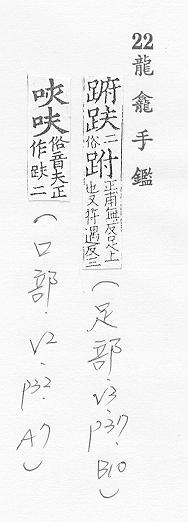 22 龍龕手鑑
趺二俗跗正甫無反足上也又符遇反三(足部.V3.P37.B10)
呋俗音夫正作趺二(口部.V2.P32.A7)